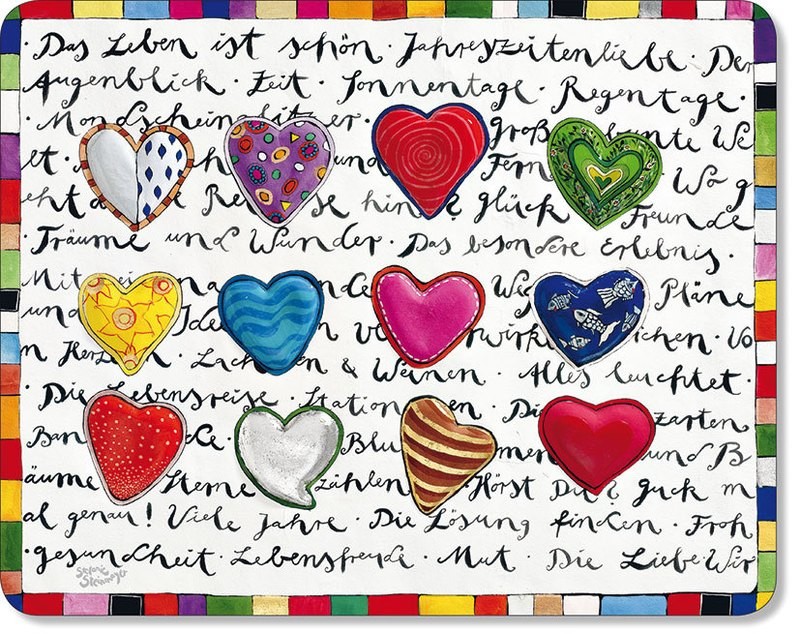 · Das Leben ist schön · Jahreszeitenliebe · Der
Augenblick · Zeit · Sonnentage · Regentage ·
· Mondschein · Groß bunte We
lt · und Fern Wo g
eht die Reise hin? Glück · Freunde
· Träume und Wunder · Das besondere Erlebnis ·
Mit Pläne
und Idee verwirklichen · Vo
n Herzen · Lachen & Weinen · Alles leuchtet ·
· Die Lebensreise · Station en · Di zarten
Ban de · Blu men und B
äume · Sterne zählen · Hörst Du? Guck m
al genau! Viele Jahre · Die Lösung finden · Froh
· gesundheit · Lebensfreude · Mut · Die Liebe · Wir